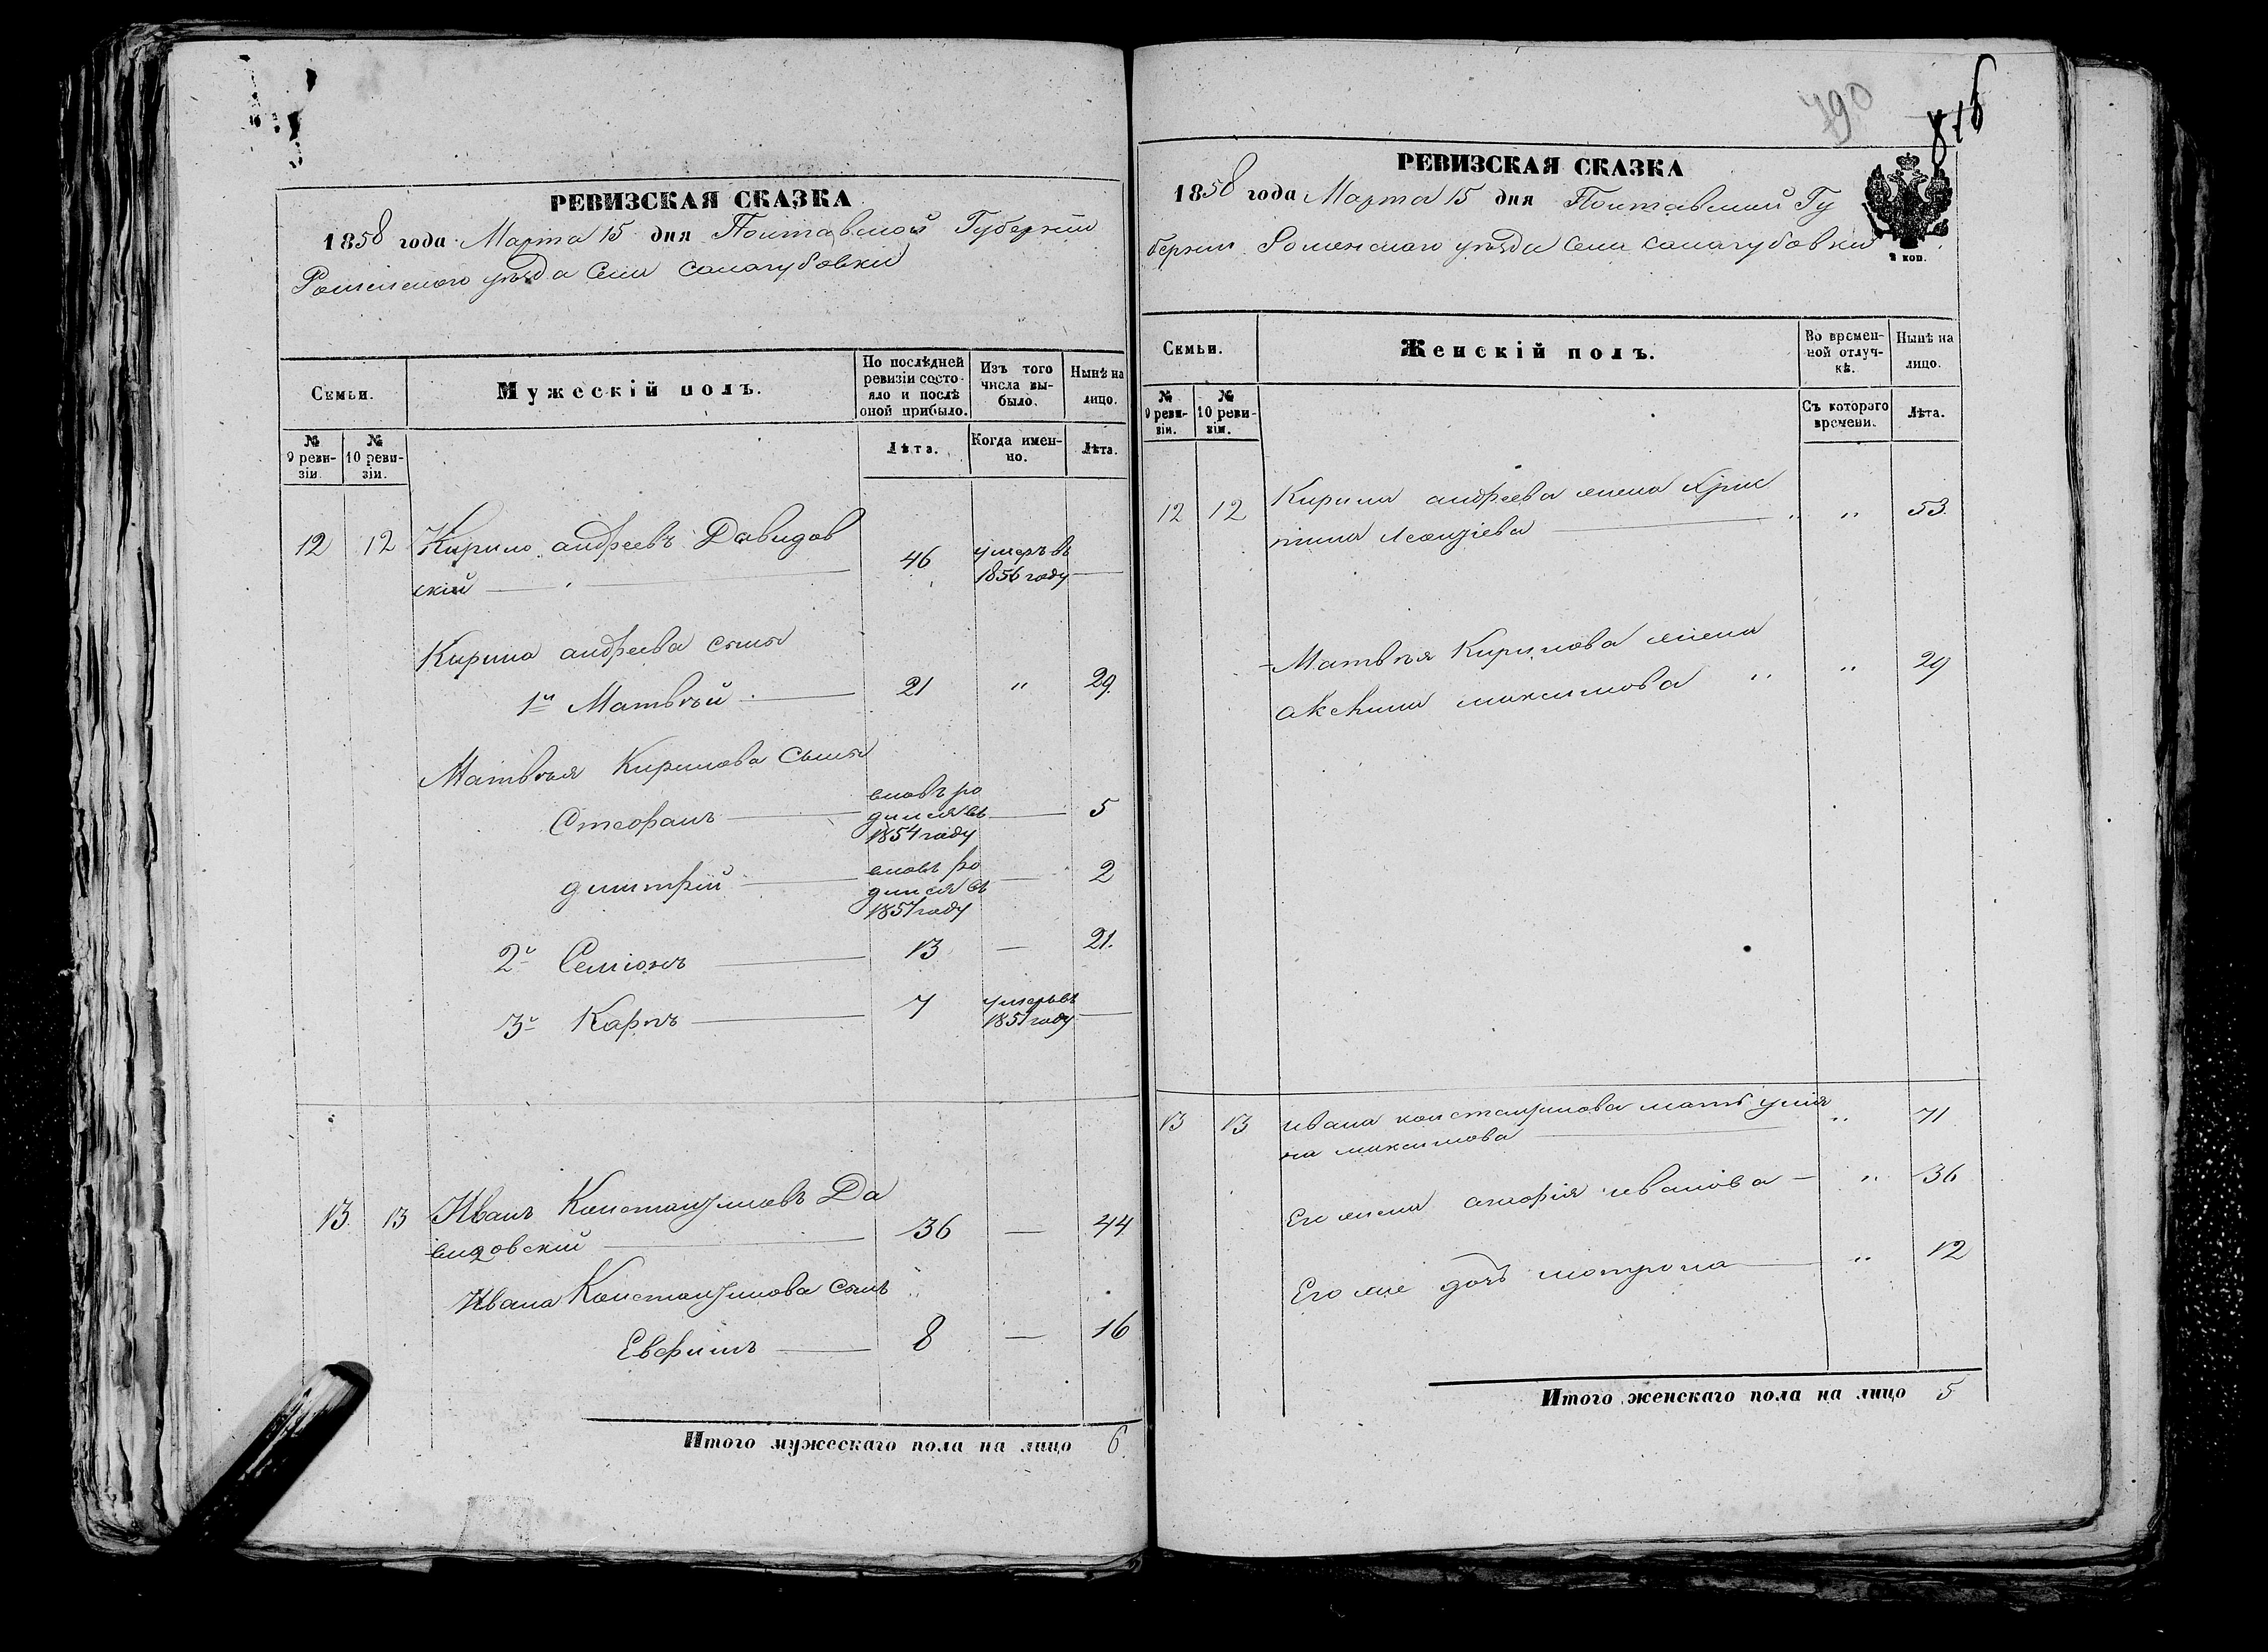 РЕВИЗСКАЯ СКАЗКА
1858 года Марта 15 дня Полтавской Губерніи
Роменского уѣзда Села Салогубовки
Семьи.
Мужескій полъ.
По послѣдней ревизіи состояло и послѣ оной прибыло.
Изъ того числа выбыло.
Нынѣ на лицо.
№ 9 ревизіи.
№ 10 ревизіи.
Лѣта.
Когда именно.
Лѣта.
12 12 Кирило андреевъ Давидов
скій 46 умеръ въ 1856 году
Кирила андреева сыны
1й Матвѣй 21 " 29.
Матвѣя Кирилова сыны
Стефанъ вновъ родился въ 1854 году 5
димитрій вновъ родился въ 1857 году 2
2й Семіонъ 13 — 21.
3й Карпъ 7 умеръ въ году
13 13 Иванъ Константиновъ Да
видовский 36 — 44
Ивана Константинова сынъ
Евфимъ 8 — 16
Итого мужескаго пола на лицо 6
790
816
РЕВИЗСКАЯ СКАЗКА
1858 года Марта 15 дня Полтавской Гу
берніи Роменского уѣзда Села салогубовки
2 коп.
Семьи.
Женскій полъ.
Во временной отлучкѣ.
Нынѣ на лицо.
№ 9 ревизіи.
№ 10 ревизіи.
Съ котораго времени.
Лѣта.
12 12 Кирила андреева жена Хрис
тина Леонтіева " " 53.
Матвѣя Кирилова жена
Аксенина максимова " " 29
13 13 ивана константинова мать улiя
на максимова " 71
Его жена агафія иванова — " 36
Его же дочь мотрона " 12
Итого женскаго пола на лицо 5